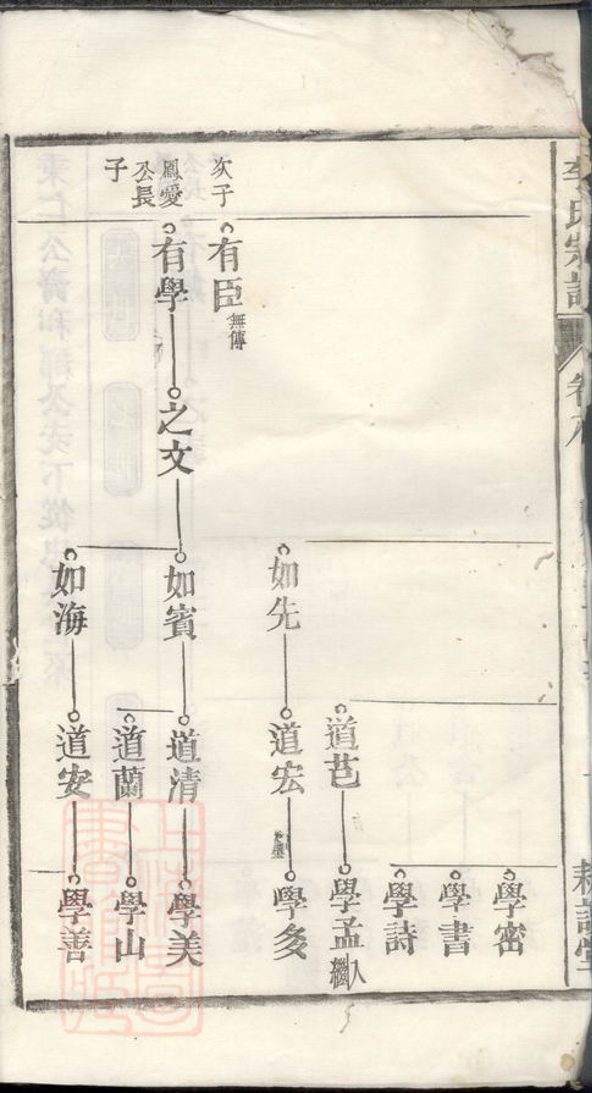 李氏宗譜
卷八
耕讀堂
次子
有臣
無傳
鳳愛
公長
子
有學
之文
如先
如賓
如海
道芑
道宏
道清
道蘭
道安
學密
學書
學詩
學孟
入
繼
學美
學山
學善
上海圖書館藏